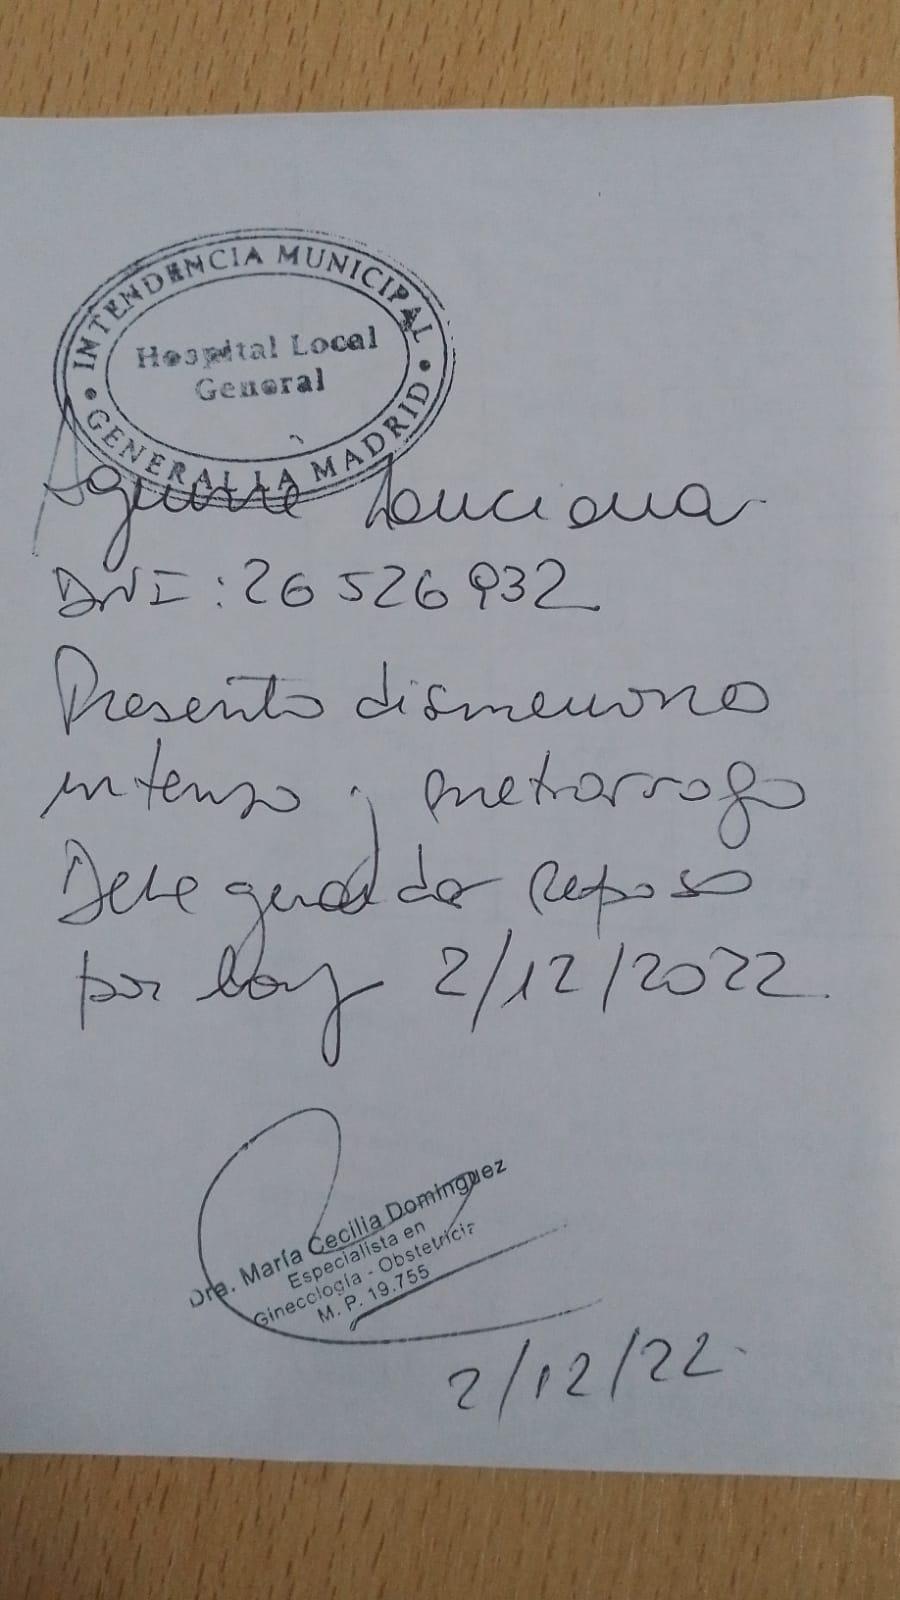 INTENDENCIA MUNICIPAL
Hospital Local
General
GENERAL LA MADRID
Aguirre Louciana
DNI: 26 526 932
Presenta dismenorrea
intensa y metrorragia
Debe guardar Reposo
por hoy 2/12/2022.
Dra. María Cecilia Dominguez
Especialista en
Ginecología - Obstetricia
M. P. 19.755
2/12/22.